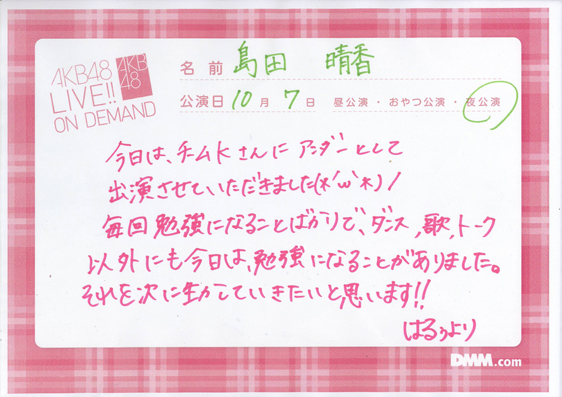 AKB48
LIVE!!
ON DEMAND
AKB
48
名前 島田 晴香
公演日 10月 7日 昼公演・おやつ公演・夜公演
今日は、チームKさんに アンダーとして
出演させていただきました(*´ω`*)/
毎回勉強になることばかりで、ダンス,歌,トーク
以外にも今日は、勉強になることがありました。
それを次に生かしていきたいと思います!!
はるぅより
DMM.com